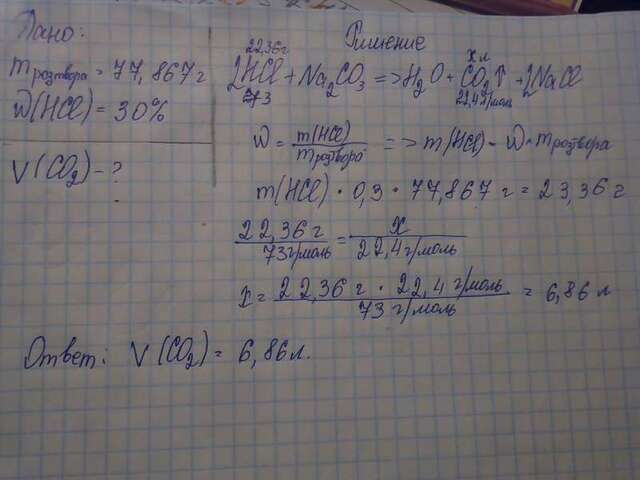 Дано:
m розтвора = 77,867 г
W(HCl) = 30%
V(CO₂) - ?
Ришение
22,36 г
x л
2HCl + Na₂CO₃ => H₂O + CO₂↑ + 2NaCl
73
22,4 г/моль
W = m(HCl) / m розтвора => m(HCl) - W · m розтвора
m(HCl) · 0,3 · 77,867 г = 23,36 г
22,36 г / 73 г/моль = x / 22,4 г/моль
x = 22,36 г · 22,4 г/моль / 73 г/моль = 6,86 л
Ответ: V(CO₂) = 6,86 л.